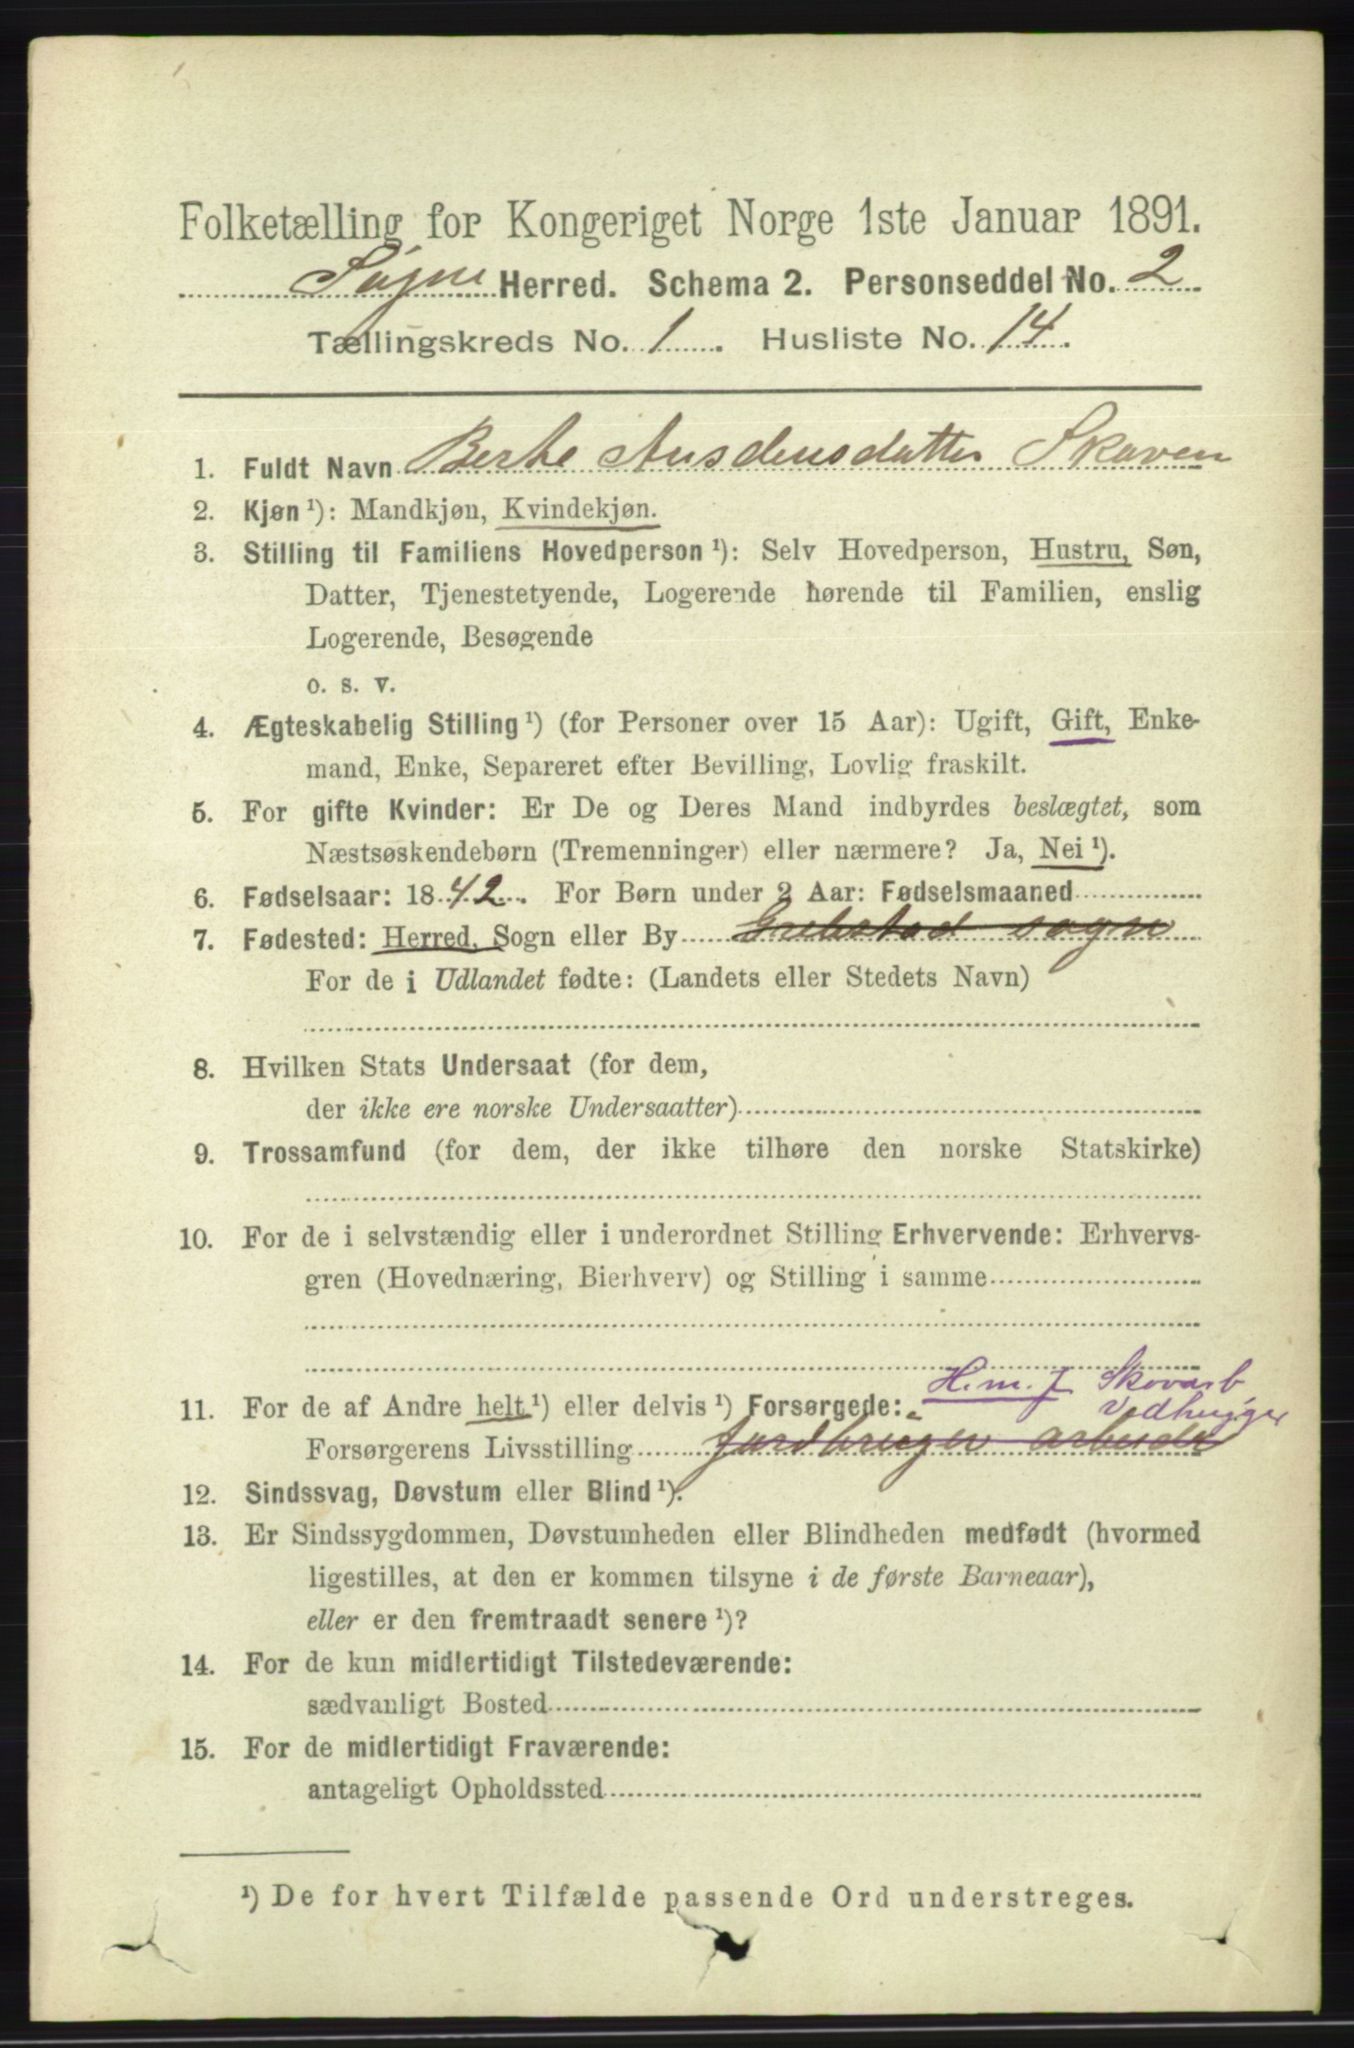 Folketælling for Kongeriget Norge 1ste Januar 1891.
Søgne Herred. Schema 2. Personseddel No. 2
Tællingskreds No. 1. Husliste No. 14.
1. Fuldt Navn Berte Ausdensdatter Skaven
2. Kjøn ¹): Mandkjøn, Kvindekjøn.
3. Stilling til Familiens Hovedperson ¹): Selv Hovedperson, Hustru, Søn,
Datter, Tjenestetyende, Logerende hørende til Familien, enslig
Logerende, Besøgende
o. s. v.
4. Ægteskabelig Stilling ¹) (for Personer over 15 Aar): Ugift, Gift, Enke-
mand, Enke, Separeret efter Bevilling, Lovlig fraskilt.
5. For gifte Kvinder: Er De og Deres Mand indbyrdes beslægtet, som
Næstsøskendebørn (Tremenninger) eller nærmere? Ja, Nei ¹).
6. Fødselsaar: 1842. For Børn under 2 Aar: Fødselsmaaned
7. Fødested: Herred, Sogn eller By Grebstad sogn
For de i Udlandet fødte: (Landets eller Stedets Navn)
8. Hvilken Stats Undersaat (for dem,
der ikke ere norske Undersaatter)
9. Trossamfund (for dem, der ikke tilhøre den norske Statskirke)
10. For de i selvstændig eller i underordnet Stilling Erhvervende: Erhvervs-
gren (Hovednæring, Bierhverv) og Stilling i samme
H. m. f. Skovarb
Vedhugger
11. For de af Andre helt ¹) eller delvis ¹) Forsørgede:
Forsørgerens Livsstilling Jordbruger arbeide
12. Sindssvag, Døvstum eller Blind ¹).
13. Er Sindssygdommen, Døvstumheden eller Blindheden medfødt (hvormed
ligestilles, at den er kommen tilsyne i de første Barneaar),
eller er den fremtraadt senere ¹)?
14. For de kun midlertidigt Tilstedeværende:
sædvanligt Bosted
15. For de midlertidigt Fraværende:
antageligt Opholdssted
¹) De for hvert Tilfælde passende Ord understreges.